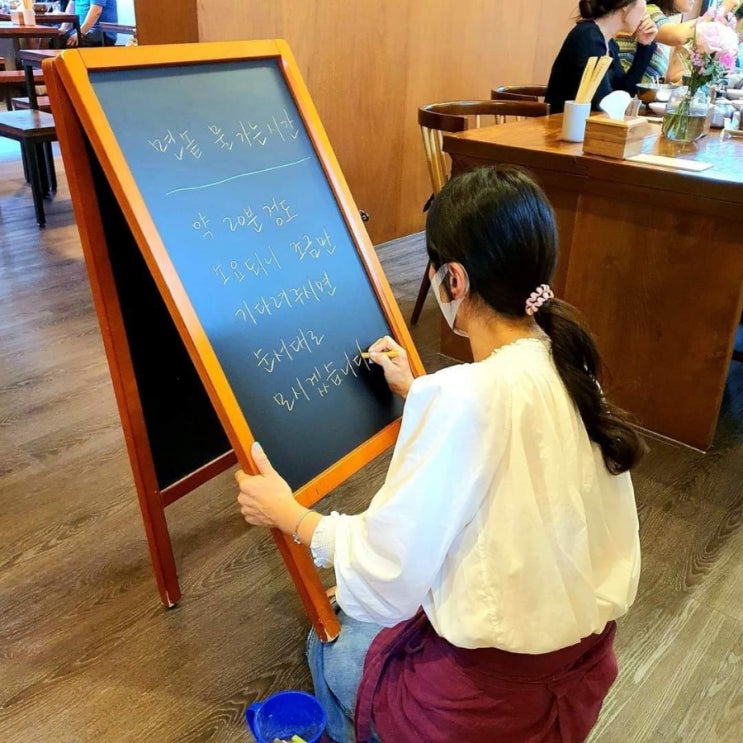 면솥 물 가는 시간
약 20분 정도
소요되니 조금만
기다려주시면
순서대로
모시겠습니다